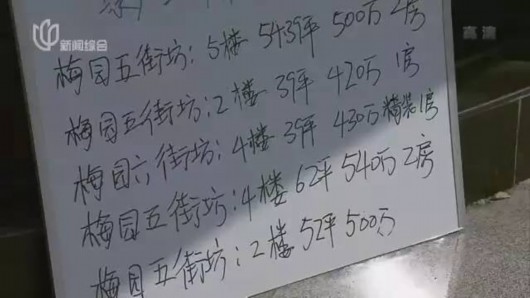 新闻综合
高清
梅园五街坊:5楼 54.39坪 500万 2房
梅园五街坊:2楼 39坪 420万 1房
梅园六街坊:4楼 39坪 430万精装1房
梅园五街坊:4楼 62坪 540万 2房
梅园五街坊:2楼 52坪 500万